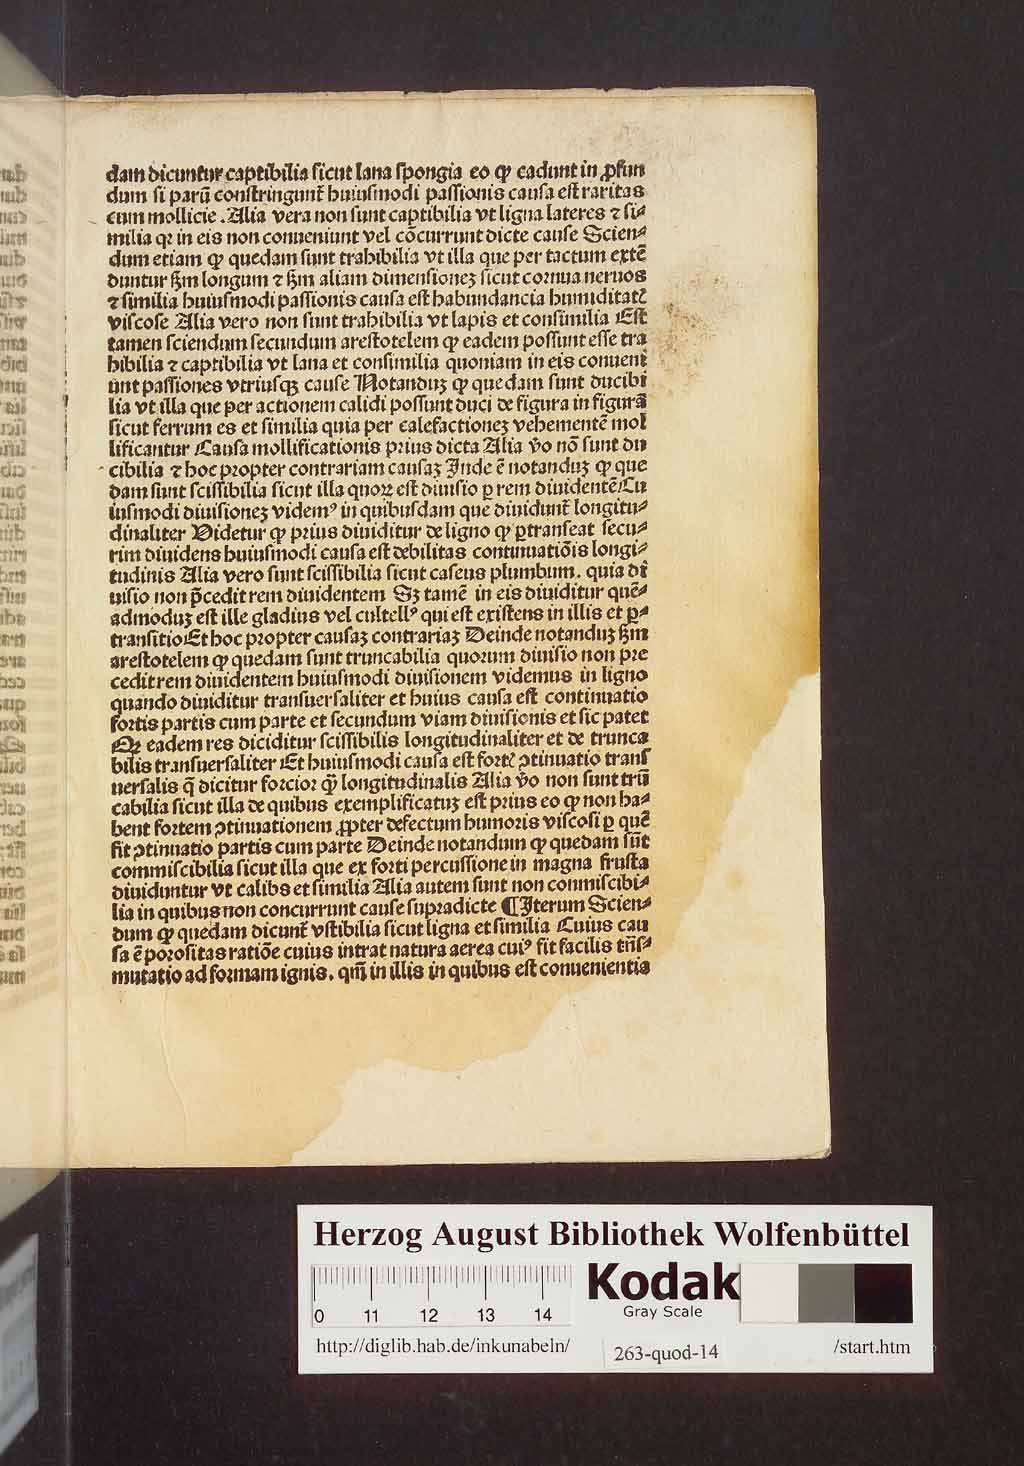 dam dicuntur captibilia sicut lana spongia eo ꝙ cadunt in ꝓfun
dum si parū constringunt̄ huiusmodi passionis causa est raritas
cum mollicie . Alia vera non sunt captibilia vt ligna lateres ⁊ si⸗
milia qꝛ in eis non conueniunt vel cōcurrunt dicte cause Scien⸗
dum etiam ꝙ quedam sunt trahibilia vt illa que per tactum extē
duntur s̄m longum ⁊ s̄m aliam dimensioneꝫ sicut cornua neruos
⁊ similia huiusmodi passionis causa est habundancia humiditatꝭ
viscose Alia vero non sunt trahibilia vt lapis et consimilia Est
tamen sciendum secundum arestotelem ꝙ eadem possunt esse tra
hibilia ⁊ captibilia vt lana et consimilia quoniam in eis conueni
unt passiones vtriusqꝫ cause Notanduꝫ ꝙ quedam sunt ducibi
lia vt illa que per actionem calidi possunt duci de figura in figurā
sicut ferrum es et similia quia per calefactioneꝫ vehementē mol
lificantur Causa mollificationis prius dicta Alia v̄o nō sunt du
cibilia ⁊ hoc propter contrariam causaꝫ Inde ē notanduꝫ ꝙ que
dam sunt scissibilia sicut illa quoꝝ est diuisio ꝑ rem diuidentē Cu
iusmodi diuisioneꝫ videmꝰ in quibusdam que diuidunt̄ longitu⸗
dinaliter Videtur ꝙ prius diuiditur de ligno ꝙ ꝑtranseat secu⸗
rim diuidens huiusmodi causa est debilitas continuatiōis longi⸗
tudinis Alia vero sunt scissibilia sicut caseus plumbum . quia di
uisio non p̄cedit rem diuidentem Sꝫ tamē in eis diuiditur quē⸗
admoduꝫ est ille gladius vel cultellꝰ qui est existens in illis et ꝑ⸗
transitio Et hoc propter causaꝫ contrariaꝫ Deinde notanduꝫ s̄m
arestotelem ꝙ quedam sunt truncabilia quorum diuisio non pre
cedit rem diuidentem huiusmodi diuisionem videmus in ligno
quando diuiditur transuersaliter et huius causa est continuatio
fortis partis cum parte et secundum viam diuisionis et sic patet
Qꝛ eadem res diciditur scissibilis longitudinaliter et de trunca
bilis transuersaliter Et huiusmodi causa est fortꝭ ꝯtinuatio trans
uersalis q̄ dicitur forcior ꝙ̄ longitudinalis Alia v̄o non sunt trū
cabilia sicut illa de quibus exemplificatuꝫ est prius eo ꝙ non ha⸗
bent fortem ꝯtinuationem ꝓpter defectum humoris viscosi ꝑ quē
fit ꝯtinuatio partis cum parte Deinde notandum ꝙ quedam sūt
commiscibilia sicut illa que ex forti percussione in magna frusta
diuiduntur vt calibs et similia Alia autem sunt non conmiscibi⸗
lia in quibus non concurrunt cause supradicte ¶ Iterum Scien⸗
dum ꝙ quedam dicunt̄ vstibilia sicut ligna et similia Cuius cau
sa ē porositas ratiōe cuius intrat natura aerea cuiꝰ fit facilis trīs⸗
mutatio ad formam ignis . qm̄ in illis in quibus est conuenientia
Herzog August Bibliothek Wolfenbüttel
0 11 12 13 14
Kodak
Gray Scale
http://diglib.hab.de/inkunabeln/ 263-quod-14 /start.htm